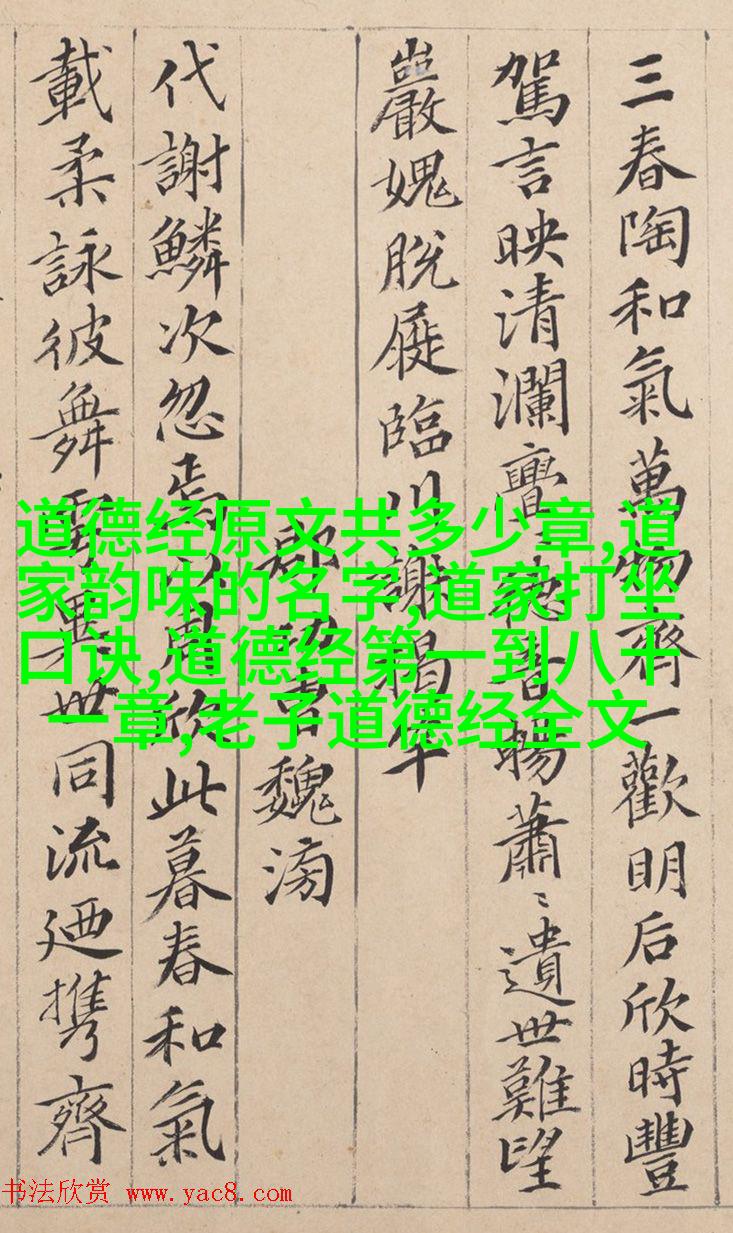 三春陶和氣萬物齊一歡明后欣時豐
駕言映清瀾亹〻德音暢蕭〻遺世難望
巖愧脫屣臨川謝揭竿
郡功曹魏滂
代謝鱗次忽焉以周欣此暮春和氣
載柔詠彼舞雩異世同流廼携齊
道德经原文共多少章,道
家韵味的名字,道家打坐
口诀,道德经第一到八十
一章,老子道德经全文
书法欣赏 www.yac8.com